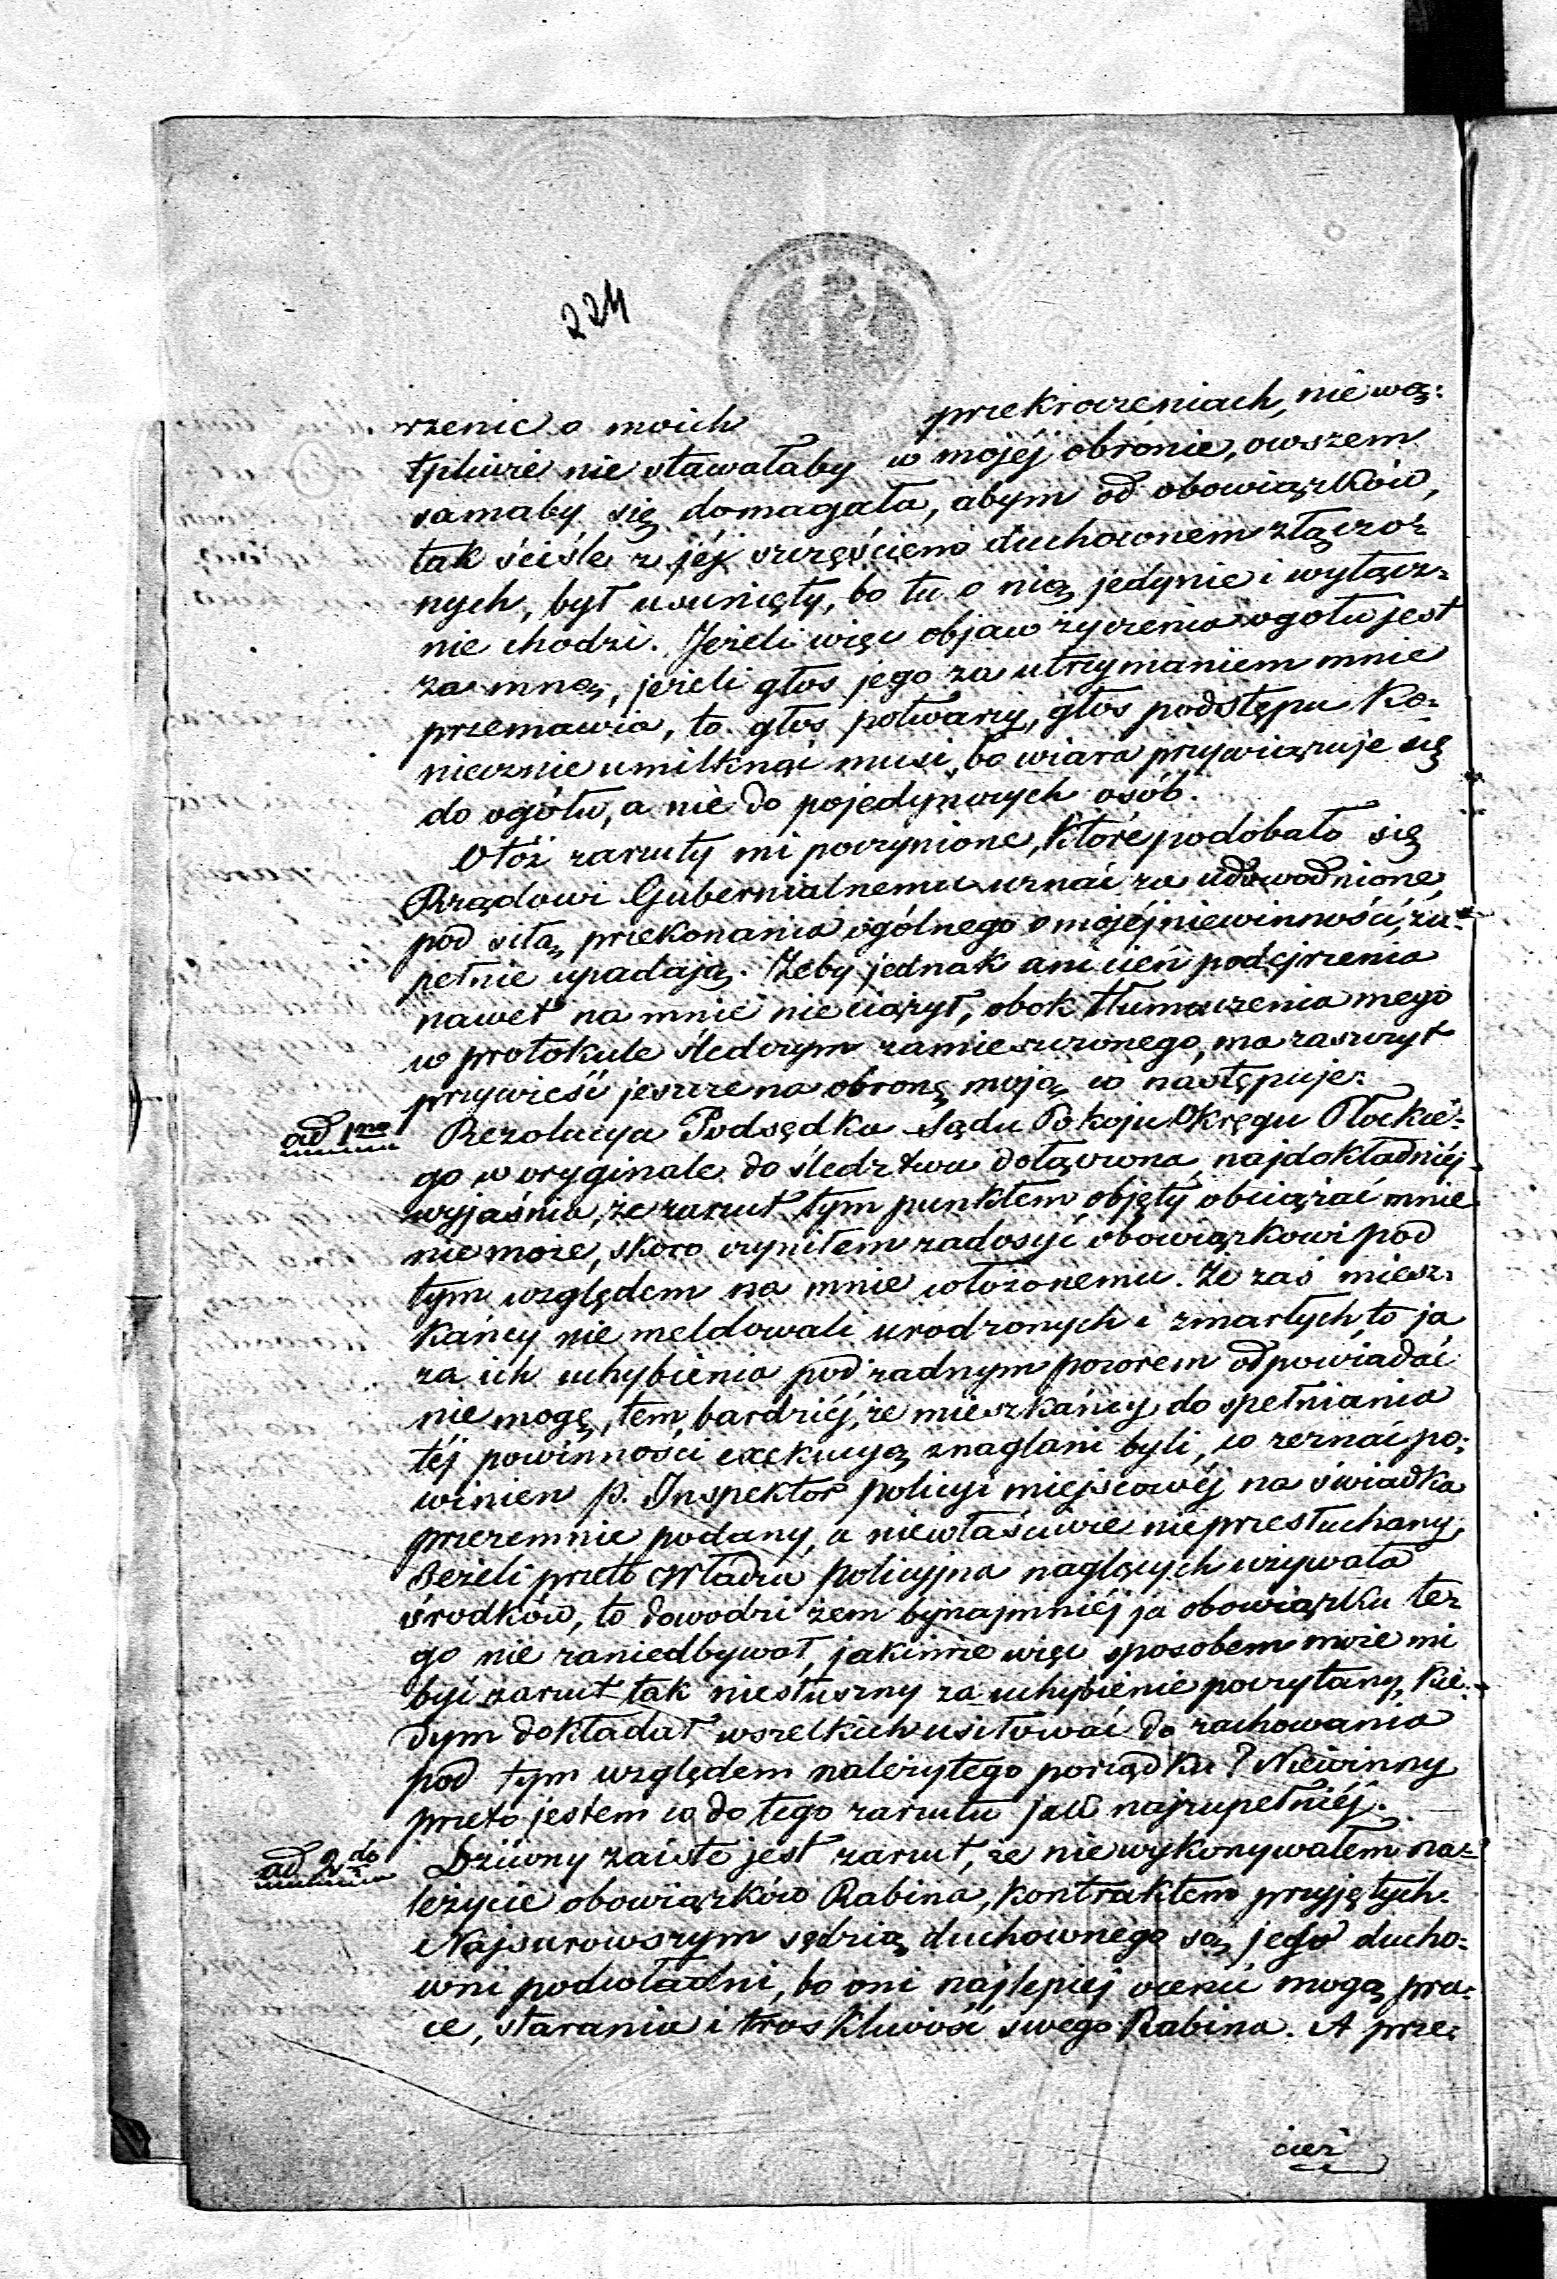 224
rzenie o moich przekroczeniach, nie wą:
tpliwie nie stawałaby w mojéj obronie, owszem
samaby się domagała, abym od obowiązków,
tak ściśle z jéj szczęściem duchownem złączo:
nych, był usunięty, bo tu o nią jedynie i wyłącz:
nie chodzi. Jeżeli więc objaw życzenia ogołu jest
za mną, jeżeli głos jego za utrzymaniem mnie
przemawia, to głos potwarzy, głos podstępu ko:
niecznie umilknąć musi, bo wiara przywiązuje się
do ogółu, a nie do pojedyńczych osób.
Otóż zarzuty mi poczynione, które podobało się
Rządowi Gubernialnemu uznać za udowodnione,
pod siłą przekonania ogólnego o mojéj niewinności, zu:
pełnie upadają. Żeby jednak ani cień podejrzenia
nawet na mnie nie ciążył, obok tłumaczenia mego
w protokule śledczym zamieszczonego, ma zaszczyt
przywieść jeszcze na obronę moją co następuje:
ad 1mo Rezolucya Podsędka Sądu Pokoju Okręgu Płockie:
go w oryginale do śledztwa dołączona, najdokładniéj
wyjaśnia, że zarzut tym punktem objęty obciążać mnie
nie może, skoro czyniłem zadosyć obowiązkowi pod
tym względem na mnie włożonemu. Że zaś miesz:
kańcy nie meldowali urodzonych i zmarłych, to ja
za ich uchybienia pod żadnym pozorem odpowiadać
nie mogę, tem bardziéj, że mieszkańcy do spełniania
téj powinności exekucyą znaglani byli, co zeznać po:
winien p. Inspektor policyi miejscowéj na świadka
przezemnie podany, a niewłaściwie nieprzesłuchany,
Jeżeli przeto Władza policyjna naglących używała
środków, to dowodzi żem bynajmniéj ja obowiązku te:
go nie zaniedbywał, jakimże więc sposobem może mi
być zarzut tak niesłuszny za uchybienie poczytany, kie:
dym dokładał wszelkich usiłować do zachowania
pod tym względem należytego porządku? Niewinny
przeto jestem co do tego zarzutu jak najzupełniéj.
ad 2do Dziwny zaiste jest zarzut, że nie wykonywałem na:
leżycie obowiązków Rabina, kontraktem przyjętych.
Najsurowszym sędzią duchownego są jego ducho:
wni podwładni, bo oni najlepiej ocenić mogą pra:
ce, starania i troskliwość swego Rabina. A prze:
cież